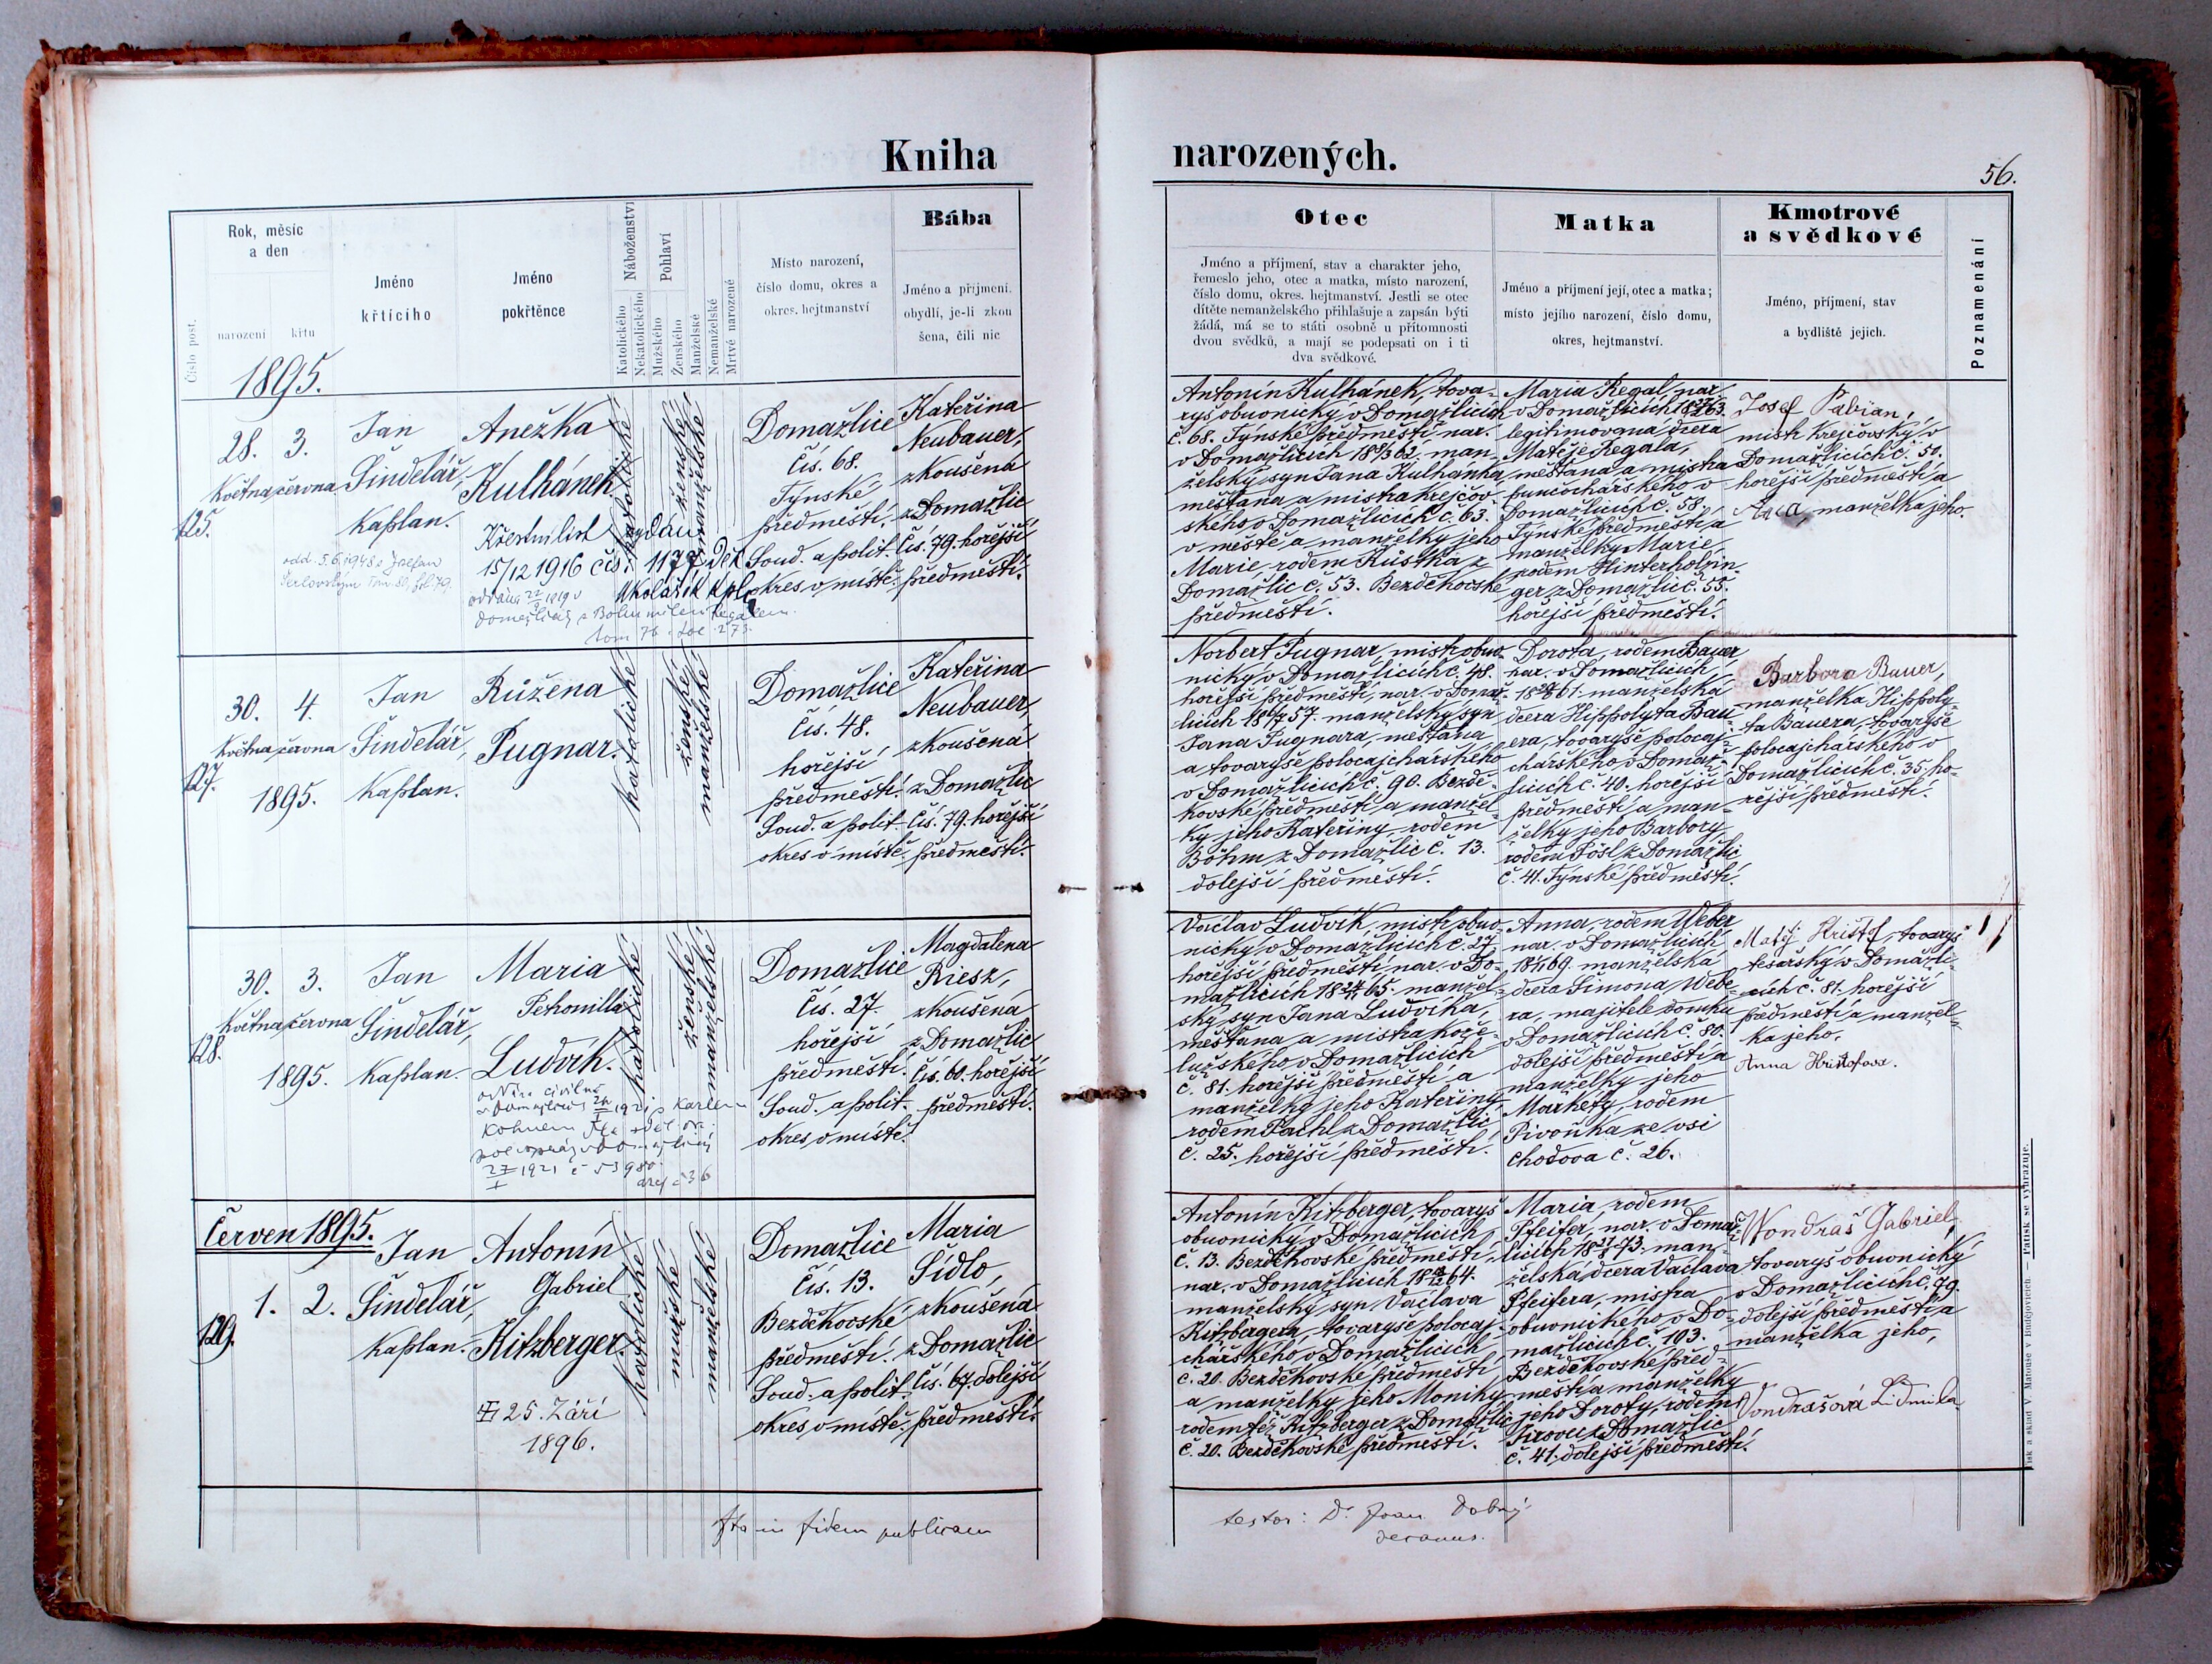 Kniha narozených.
56.
Číslo post.
Rok, měsíc
a den
narození
křtu
Jméno
křtícího
Jméno
pokřtěnce
Náboženství
Katolického
Nekatolického
Pohlaví
Mužského
Ženského
Manželské
Nemanželské
Mrtvé narozené
Místo narození,
číslo domu, okres a
okres. hejtmanství
Bába
Jméno a příjmení.
obydlí, je-li zkou
šena, čili nic
Otec
Jméno a příjmení, stav a charakter jeho,
řemeslo jeho, otec a matka, místo narození,
číslo domu, okres. hejtmanství. Jestli se otec
dítěte nemanželského přihlašuje a zapsán býti
žádá, má se to státi osobně u přítomnosti
dvou svědků, a mají se podepsati on i ti
dva svědkové.
Matka
Jméno a příjmení její, otec a matka;
místo jejího narození, číslo domu,
okres, hejtmanství.
Kmotrové
a svědkové
Jméno, příjmení, stav
a bydliště jejich.
Poznamenání
1895.
28.
Května
3.
června
Jan
Šindelář,
Kaplan.
Anežka
Kulhánek
Křestní list vydán
15/12 1916 čís. 1177 Děk
katolické
ženské
manželské
Domažlice
čís. 68.
Týnské
předměstí.
Soud. a polit.
okres v místě.
Kateřina
Neubauer,
zkoušená
z Domažlic
čís. 79. hořejší
předměstí.
Antonín Kulhánek, tova-
ryš obuvnický v Domažlicích
č. 68. Týnské předměstí, nar.
v Domažlicích 62. man-
želský syn Jana Kulhánka
měšťana a mistra krejčov-
ského v Domažlicích č. 63.
v městě a manželky jeho
Marie, rodem Růstka z
Domažlic č. 53. Bezděkovské
předměstí.
Maria Regal, nar.
v Domažlicích 63.
legitimovaná dcera
Matěje Regala,
měšťana a mistra
punčochářského v
Domažlicích č. 58.
Týnské předměstí a
manželky Marie
rodem Hinterholzin-
ger z Domažlic č. 55.
hořejší předměstí.
Josef Fabian,
mistr krejčovský v
Domažlicích č. 50.
hořejší předměstí a
manželka jeho.
127.
30.
Května
4.
června
1895.
Jan
Šindelář,
Kaplan.
Růžena
Pugnar.
katolické
ženské
manželské
Domažlice
čís. 48.
hořejší
předměstí.
Soud. a polit.
okres v místě.
Kateřina
Neubauer,
zkoušená
z Domažlic
čís. 79. hořejší
předměstí.
Norbert Pugnar, mistr obuv-
nický v Domažlicích č. 48.
hořejší předměstí, nar. v Domaž-
licích 57. manželský syn
Jana Pugnara, měšťana
a tovaryše polocajchářského
v Domažlicích č. 90. Bezdě-
kovské předměstí a manžel-
ky jeho Kateřiny, rodem
Böhm z Domažlic č. 13.
dolejší předměstí.
Dorota, rodem Bauer
nar. v Domažlicích
61. manželská
dcera Hippolyta Bau-
era, tovaryše polocaj-
chářského v Domaž-
licích č. 40. hořejší
předměstí a man-
želky jeho Barbory
rodem Pösl z Domažlic
č. 41. Týnské předměstí.
Barbora Bauer,
manželka Hippoly-
ta Bauera, tovaryše
polocajchářského v
Domažlicích č. 35. ho-
řejší předměstí.
128.
30.
Května
3.
června
1895.
Jan
Šindelář,
Kaplan.
Maria
Petronilla
Ludvík.
katolické
ženské
manželské
Domažlice
čís. 27.
hořejší
předměstí.
Soud. a polit.
okres v místě.
Magdalena
Riesz,
zkoušená
z Domažlic
čís. 60. hořejší
předměstí.
Václav Ludvík, mistr obuv-
nický v Domažlicích č. 27.
hořejší předměstí, nar. v Do-
mažlicích 65. manžel-
ský syn Jana Ludvíka,
měšťana a mistra kože-
lužského v Domažlicích
č. 81. hořejší předměstí a
manželky jeho Kateřiny
rodem Pachl z Domažlic
č. 25. hořejší předměstí.
Anna, rodem Weber
nar. v Domažlicích
69. manželská
dcera Šimona Webe-
ra, majitele domku
v Domažlicích č. 80.
dolejší předměstí a
manželky jeho
Markety, rodem
Pivoňka ze vsi
Chodova č. 26.
Matěj Krištof, tovaryš
tesařský v Domažli-
cích č. 81. hořejší
předměstí a manžel-
ka jeho.
Anna Krištofova.
Červen 1895.
129.
1.
2.
Jan
Šindelář,
Kaplan.
Antonín
Gabriel
Kitzberger.
25. Září
1896.
katolické
mužské
manželské
Domažlice
čís. 13.
Bezděkovské
předměstí.
Soud. a polit.
okres v místě.
Maria
Sídlo,
zkoušená
z Domažlic
čís. 67. dolejší
předměstí.
Antonín Kitzberger, tovaryš
obuvnický v Domažlicích
č. 13. Bezděkovské předměstí,
nar. v Domažlicích 64.
manželský syn Václava
Kitzbergera, tovaryše polocaj-
chářského v Domažlicích
č. 20. Bezděkovské předměstí
a manželky jeho Moniky
rodem též Kitzberger z Domažlic
č. 20. Bezděkovské předměstí.
Maria, rodem
Pfeifer, nar. v Domaž-
licích 73. man-
želská dcera Václava
Pfeifera, mistra
obuvnického v Do-
mažlicích č. 103.
Bezděkovské před-
městí a manželky
jeho Doroty, rodem
z Domažlic
č. 41. dolejší předměstí.
Wondraš Gabriel,
tovaryš obuvnický
v Domažlicích č. 79.
dolejší předměstí a
manželka jeho,
Vondrašová Lidmila
Ita in fidem publicam
testor: Dr. Joan. Dobrý
decanus.
Tisk a sklad V. Matouše v Budějovicích. — Patisk se vyhrazuje.